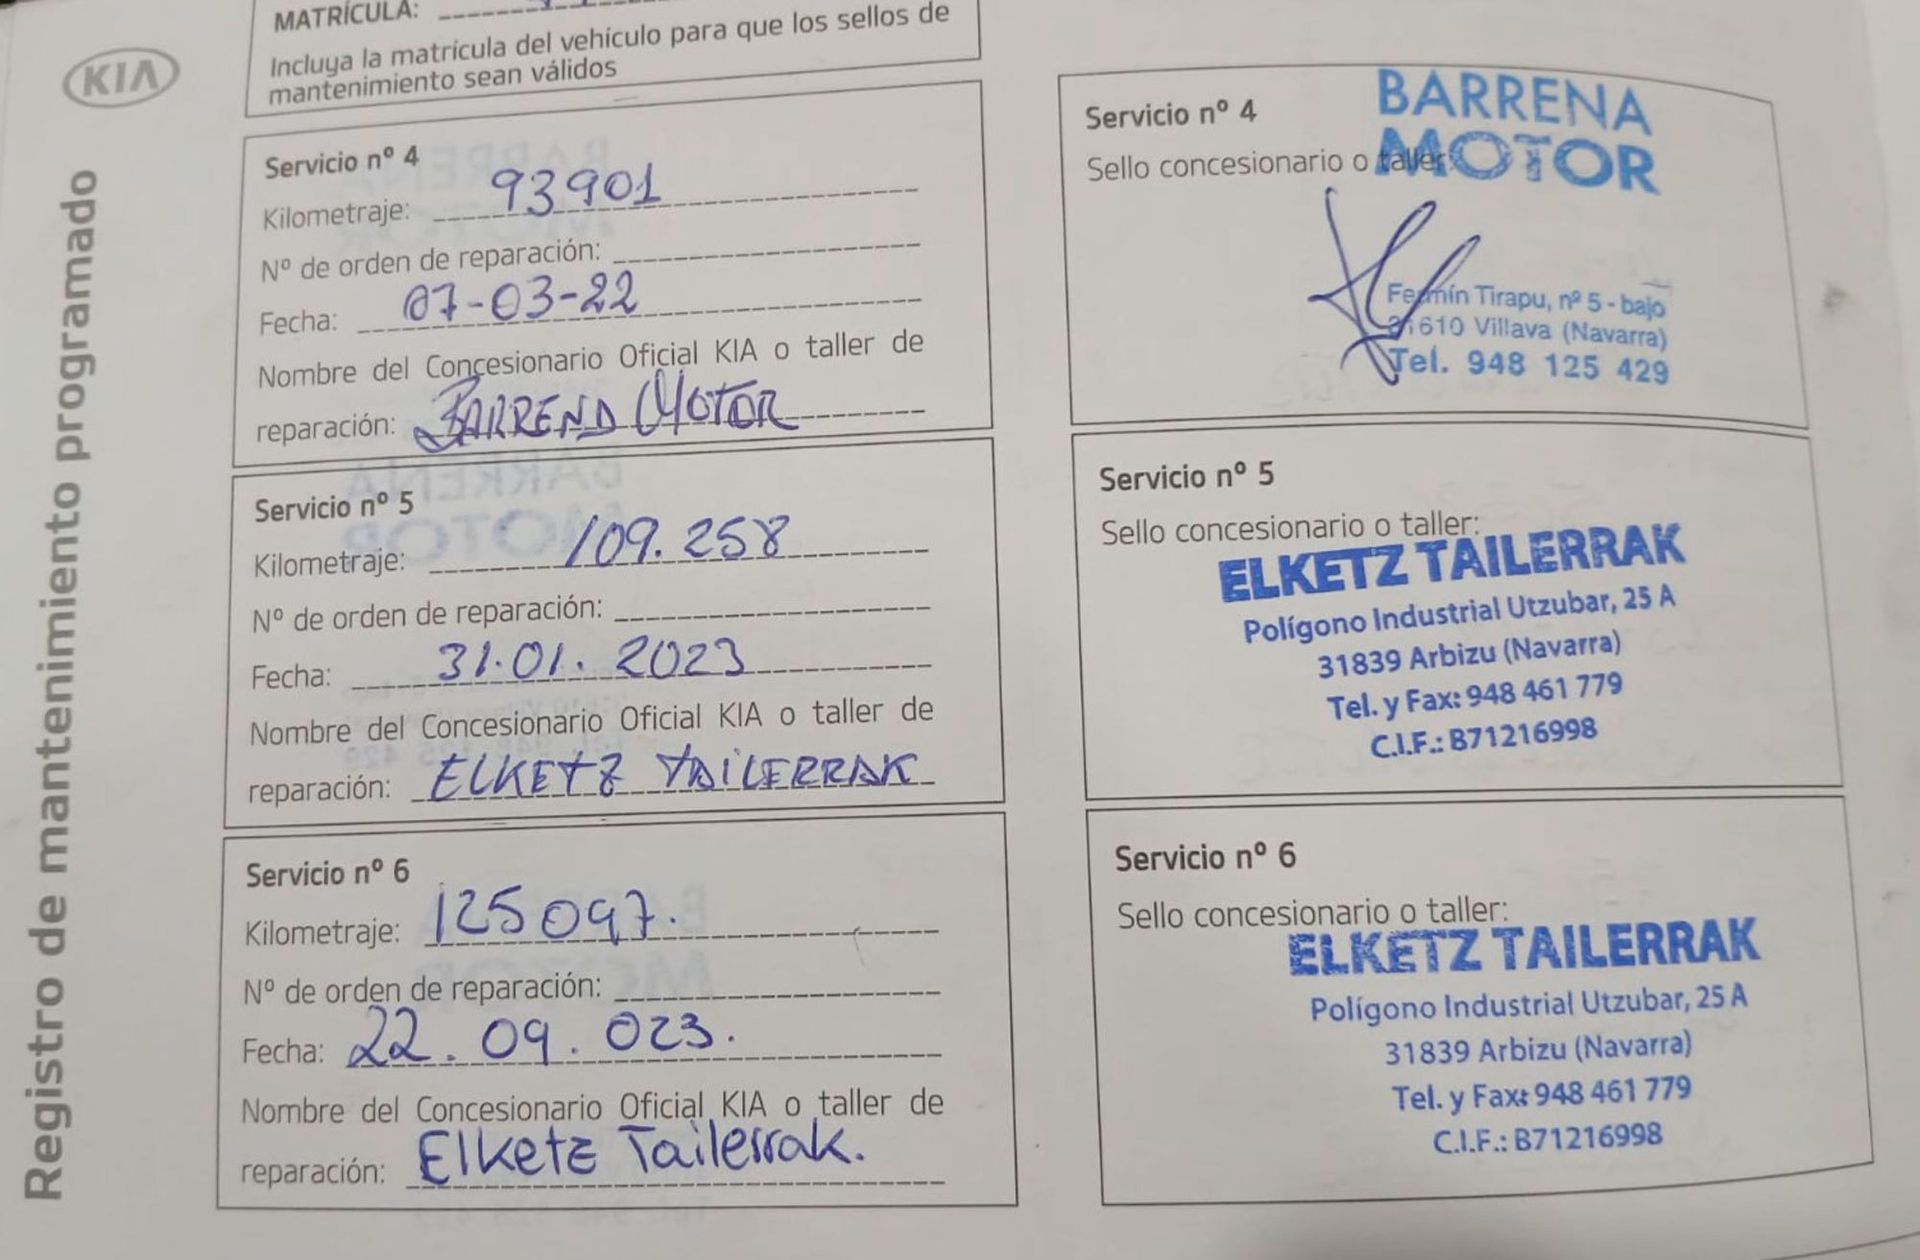 KIA
Registro de mantenimiento programado
MATRÍCULA:
Incluya la matrícula del vehículo para que los sellos de
mantenimiento sean válidos
Servicio nº 4
Kilometraje: 93901
Nº de orden de reparación:
Fecha: 07-03-22
Nombre del Concesionario Oficial KIA o taller de
reparación: BARRENA MOTOR
Servicio nº 5
Kilometraje: 109.258
Nº de orden de reparación:
Fecha: 31.01.2023
Nombre del Concesionario Oficial KIA o taller de
reparación: ELKETZ TAILERRAK
Servicio nº 6
Kilometraje: 125097.
Nº de orden de reparación:
Fecha: 22.09.023.
Nombre del Concesionario Oficial KIA o taller de
reparación: Elketz Tailerrak.
Servicio nº 4
Sello concesionario o taller:
BARRENA
MOTOR
Fermín Tirapu, nº 5 - bajo
31610 Villava (Navarra)
Tel. 948 125 429
Servicio nº 5
Sello concesionario o taller:
ELKETZ TAILERRAK
Polígono Industrial Utzubar, 25 A
31839 Arbizu (Navarra)
Tel. y Fax: 948 461 779
C.I.F.: B71216998
Servicio nº 6
Sello concesionario o taller:
ELKETZ TAILERRAK
Polígono Industrial Utzubar, 25 A
31839 Arbizu (Navarra)
Tel. y Fax: 948 461 779
C.I.F.: B71216998